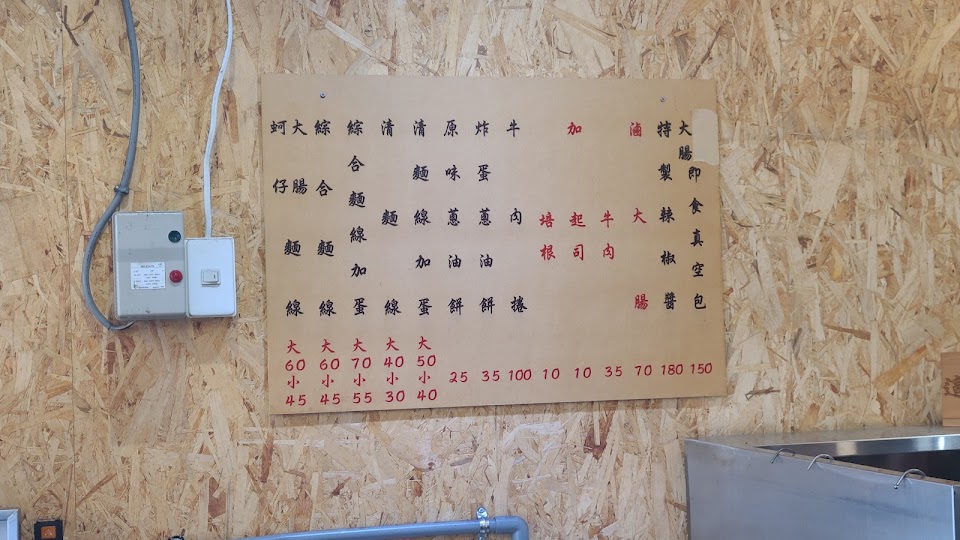 蚵仔
大腸
麵線
大60
小45
綜合麵線
大60
小45
綜合麵線加蛋
大70
小55
清麵線
大40
小30
清麵線加蛋
大50
小40
原味蔥油餅
25
炸蛋蔥油餅
35
牛肉捲
100
加
培根
10
起司
10
牛肉
35
滷大腸
70
特製辣椒醬
180
大腸即食真空包
150